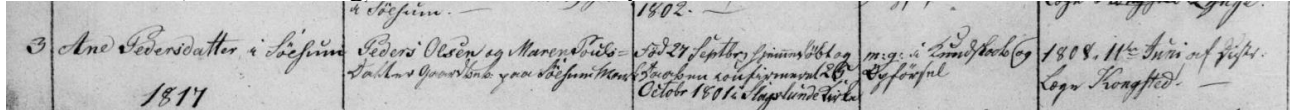 i Söesum. —
1802. —
3 Ane Pedersdatter i Söesum
Peders Olsen og Maren Povls=
Datter Gaardbeb. paa Söesum Mark
Fød 27 Septbr hjemmedøbt og
Daaben confirmeret 26
Octobr 1801 i Slagslunde Kirke
m: g: i Kundskab og
Opførsel
1808. 11te Juni af Distr.
Læge Kongsted. —
1817